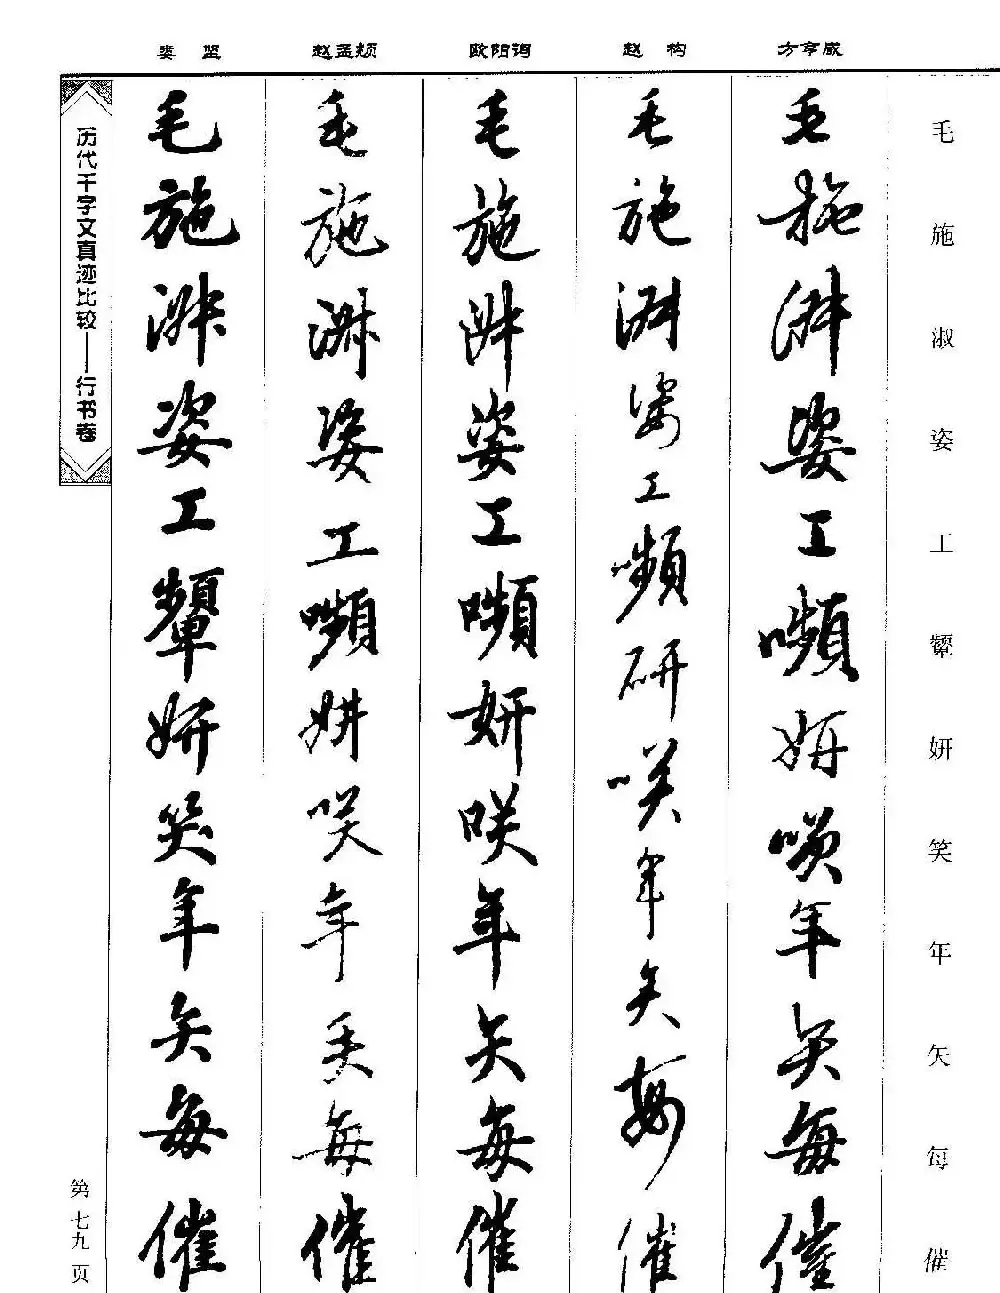 娄坚 赵孟頫 欧阳询 赵构 方亨咸
毛施淑姿工颦妍笑年矢每催
毛施淑姿工嚬研咲年矢每催
毛施淑姿工嚬妍咲年矢每催
毛施淑姿工嚬妍咲年矢每催
毛施淑姿工颦妍笑年矢每催
历代千字文真迹比较——行书卷
第七九页